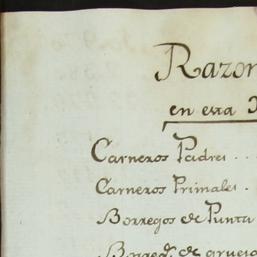 Razon
en esta
Carneros Padres . .
Carneros Primales .
Borregos de Punta
Borreg.s de grueso